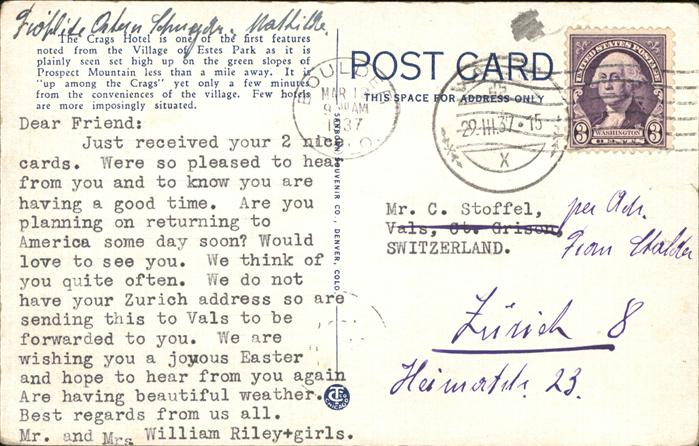 Fröhliche Ostern Mathilde.
The Crags Hotel is one of the first features
noted from the Village of Estes Park as it is
plainly seen set high up on the green slopes of
Prospect Mountain less than a mile away. It is
"up among the Crags" yet only a few minutes
from the conveniences of the village. Few hotels
are more imposingly situated.
POST CARD
THIS SPACE FOR ADDRESS ONLY
BOULDER
MAR 1
9 AM
37
COLO.
29.III.37-15
X
UNITED STATES POSTAGE
3 WASHINGTON 3
CENTS
SANBORN SOUVENIR CO., DENVER, COLO.
Dear Friend:
Just received your 2 nice
cards. Were so pleased to hear
from you and to know you are
having a good time. Are you
planning on returning to
America some day soon? Would
love to see you. We think of
you quite often. We do not
have your Zurich address so are
sending this to Vals to be
forwarded to you. We are
wishing you a joyous Easter
and hope to hear from you again
Are having beautiful weather.
Best regards from us all.
Mr. and Mrs William Riley+girls.
Mr. C. Stoffel,
Vals, Ct. Grison,
SWITZERLAND.
per Adr.
Frau Stalder
Zürich 8
Heimatstr. 23.